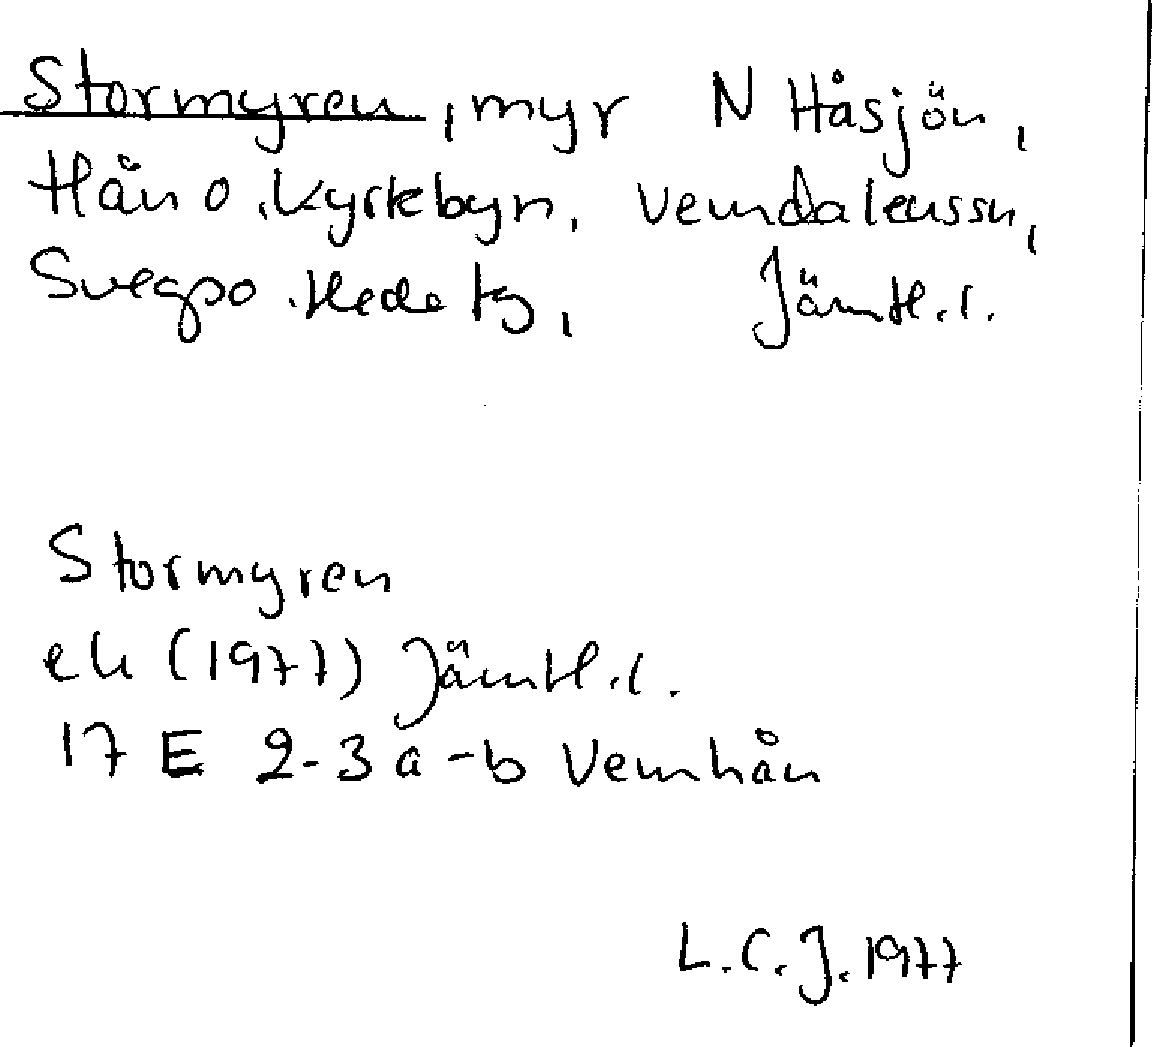 Stormyren, myr N Håsjön,
Hån o. Kyrkebyn, Vemdalenssn,
Svegpo. Hede tg, Jämtl.l.
Stormyren
ek (1977) Jämtl.l.
17 E 2-3 a-b Vemhån
L.C.J. 1977